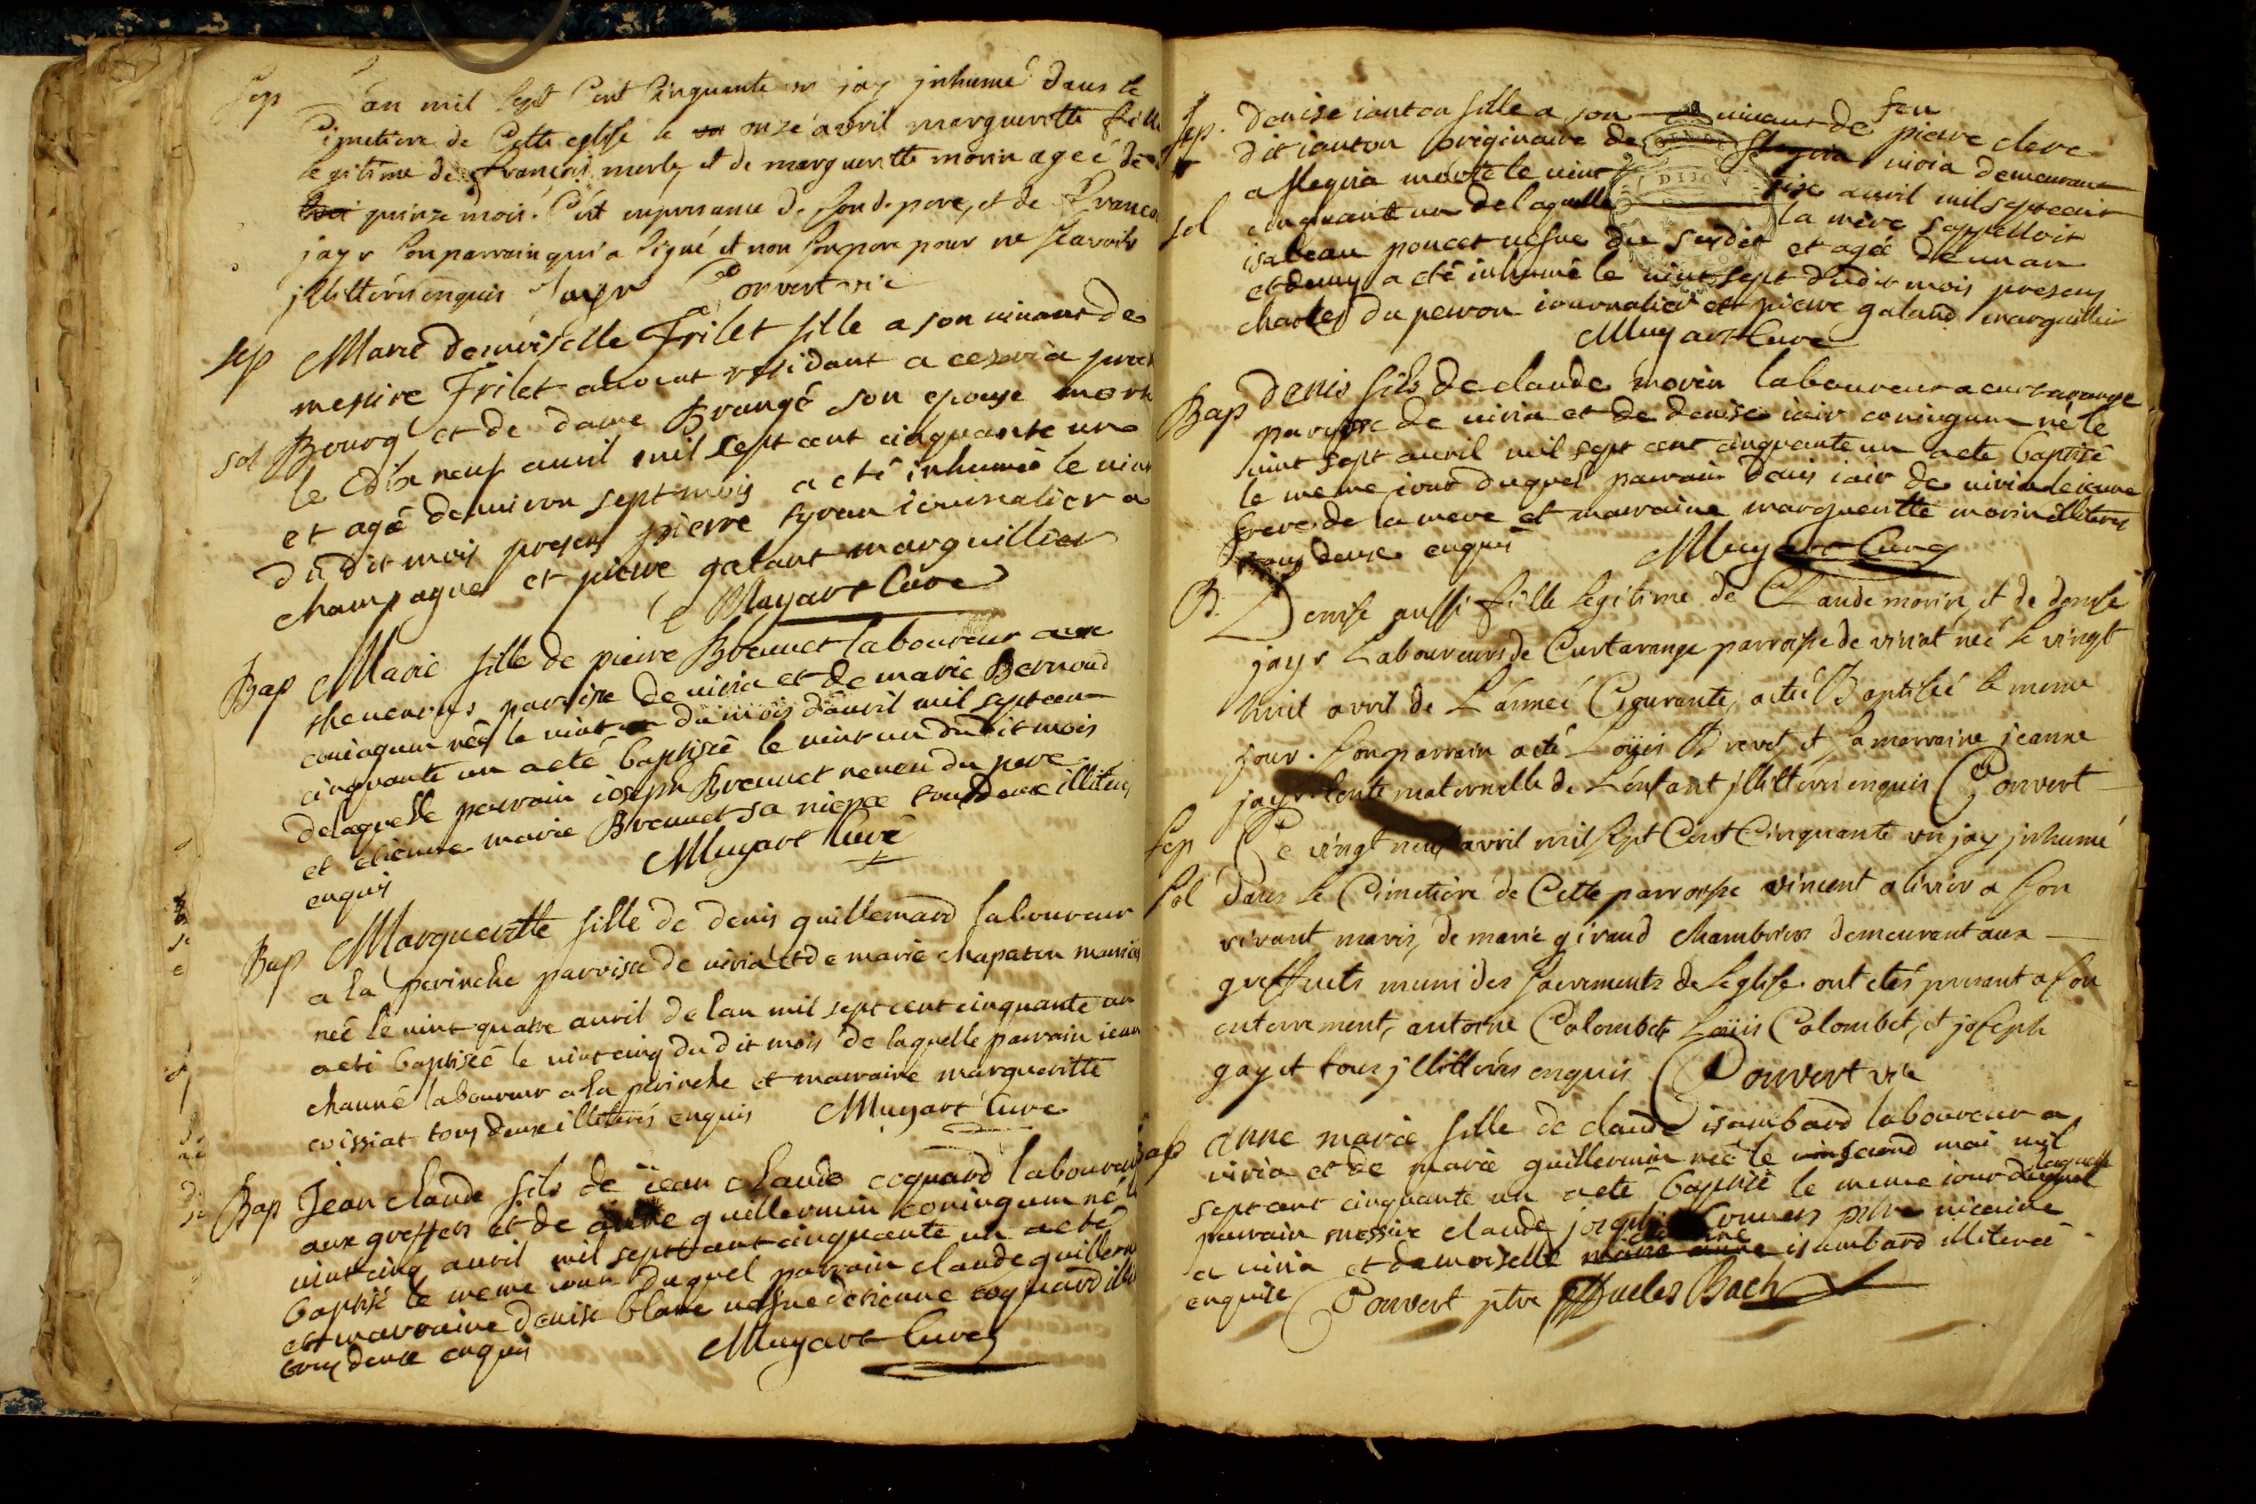 Sep L'an mil Sept Cent Cinquante un jay jnhumé dans le
Cimetiere de Cette eglise le onze avril marguerette fille
legitime de François merle et de marguerette morin ageé de
quinze mois. C'est en presence de son pere, et de
jayr son parrain qui a signé et non son pere pour ne scavoir
jllitterés enquis Jayr Convert vic
Sep Marie demoiselle Frilet fille a son vivant de
messire Frilet avocat residant a ceseria proch
sol Bourg et de dame Brangé son epouse morte
le dix neuf avril mil sept cent cinquante un
et agée denviron sept mois a eté inhumée le vint
du dit mois presens pierre tyran iournalier a
champagne et pierre galant marguillier
Muyart Curé
Bap Marie fille de pierre Brevuet laboureur aux
thevenons parroisse de viria et de marie Bernoud
coniogum née le vint du mois d'avril mil sept cen
cinquante un a eté baptiseé le vint un du dit mois
de laquelle parrain ioseph Brevuet neveu du pere
et etienne marie Brevuet sa niepce tous deux illiteres
enquis Muyart Curé
Bap Marguerette fille de denis guillemard laboureur
a la perinche parroisse de viria et de marie chapaton mariés
néé le vint quatre auril de lan mil sept cent cinquante un
a eté baptiseé le vint cinq du dit mois de laquelle parrain iean
channé laboureur a la perinche et marraine marguerette
cuissiat tous deux illiterés enquis Muyart Curé
Bap Jean claude fils de iean claude coquard laboureur
aux greffets et de guillermin coniugum né le
vint cinq auril mil sept cent cinquante un a eté
baptisé le meme iour duquel parrain claude guillerm
et marraine denise blanc vefve d'etienne coquard illi
tous deux enquis Muyart Curé
Sep. denise ianton fille a son vivant de feu pierre clerc
dit ianton originaire de viria demeurant
a fleyria morte le vint six auril mil sept cent
sol cinquante un de laquelle la mere s'appelloit
isabeau poncet vefve du susdit et agée de un an
et demy a eté inhumé le vint sept du dit mois presens
charles du perron iournalier et pierre galand marguillier
Muyart Curé
Bap denis fils de claude morin laboureur a curtarange
parroisse de viria et de denise iair coniugum né le
vint sept auril mil sept cent cinquante un a eté baptisé
le meme iour duquel parrain denis iair de viria le ieune
frere de la mere et marraine marguerette morin illiterés
tous deux enquis Muyart Curé
B. Denise aussi fille legitime de Claude morin, et de denise
jayr Laboureurs de Curtarange parroisse de viriat née le vingt
huit avril de L'année Courante, a eté Baptisée le meme
jour. son parrain a eté Loüis Brevet, et sa marraine jeanne
jayr tante maternelle de L'enfant jllitterés enquis Convert
Sep Ce vingt neuf avril mil sept Cent Cinquante un jay jnhumé
Sol dans le Cimetiere de Cette parroisse vincent olivier a son
vivant maris, de marie giraud chambrier demeurant aux
greffuets muni des sacrements de Leglise. ont etés present a son
enterrement, antoine Colombet Loüis Colombet, et joseph
gay et tous jllitterés enquis Convert vic
ap anne marie fille de claude isambard laboureur a
viria et de marie guillermin née le second mai mil
sept cent cinquante un a eté baptisé le meme iour laquelle
parrain messire claude joseph Convers pretre vicaire
a viria et demoiselle isambard illiteré
enquise Convert ptre